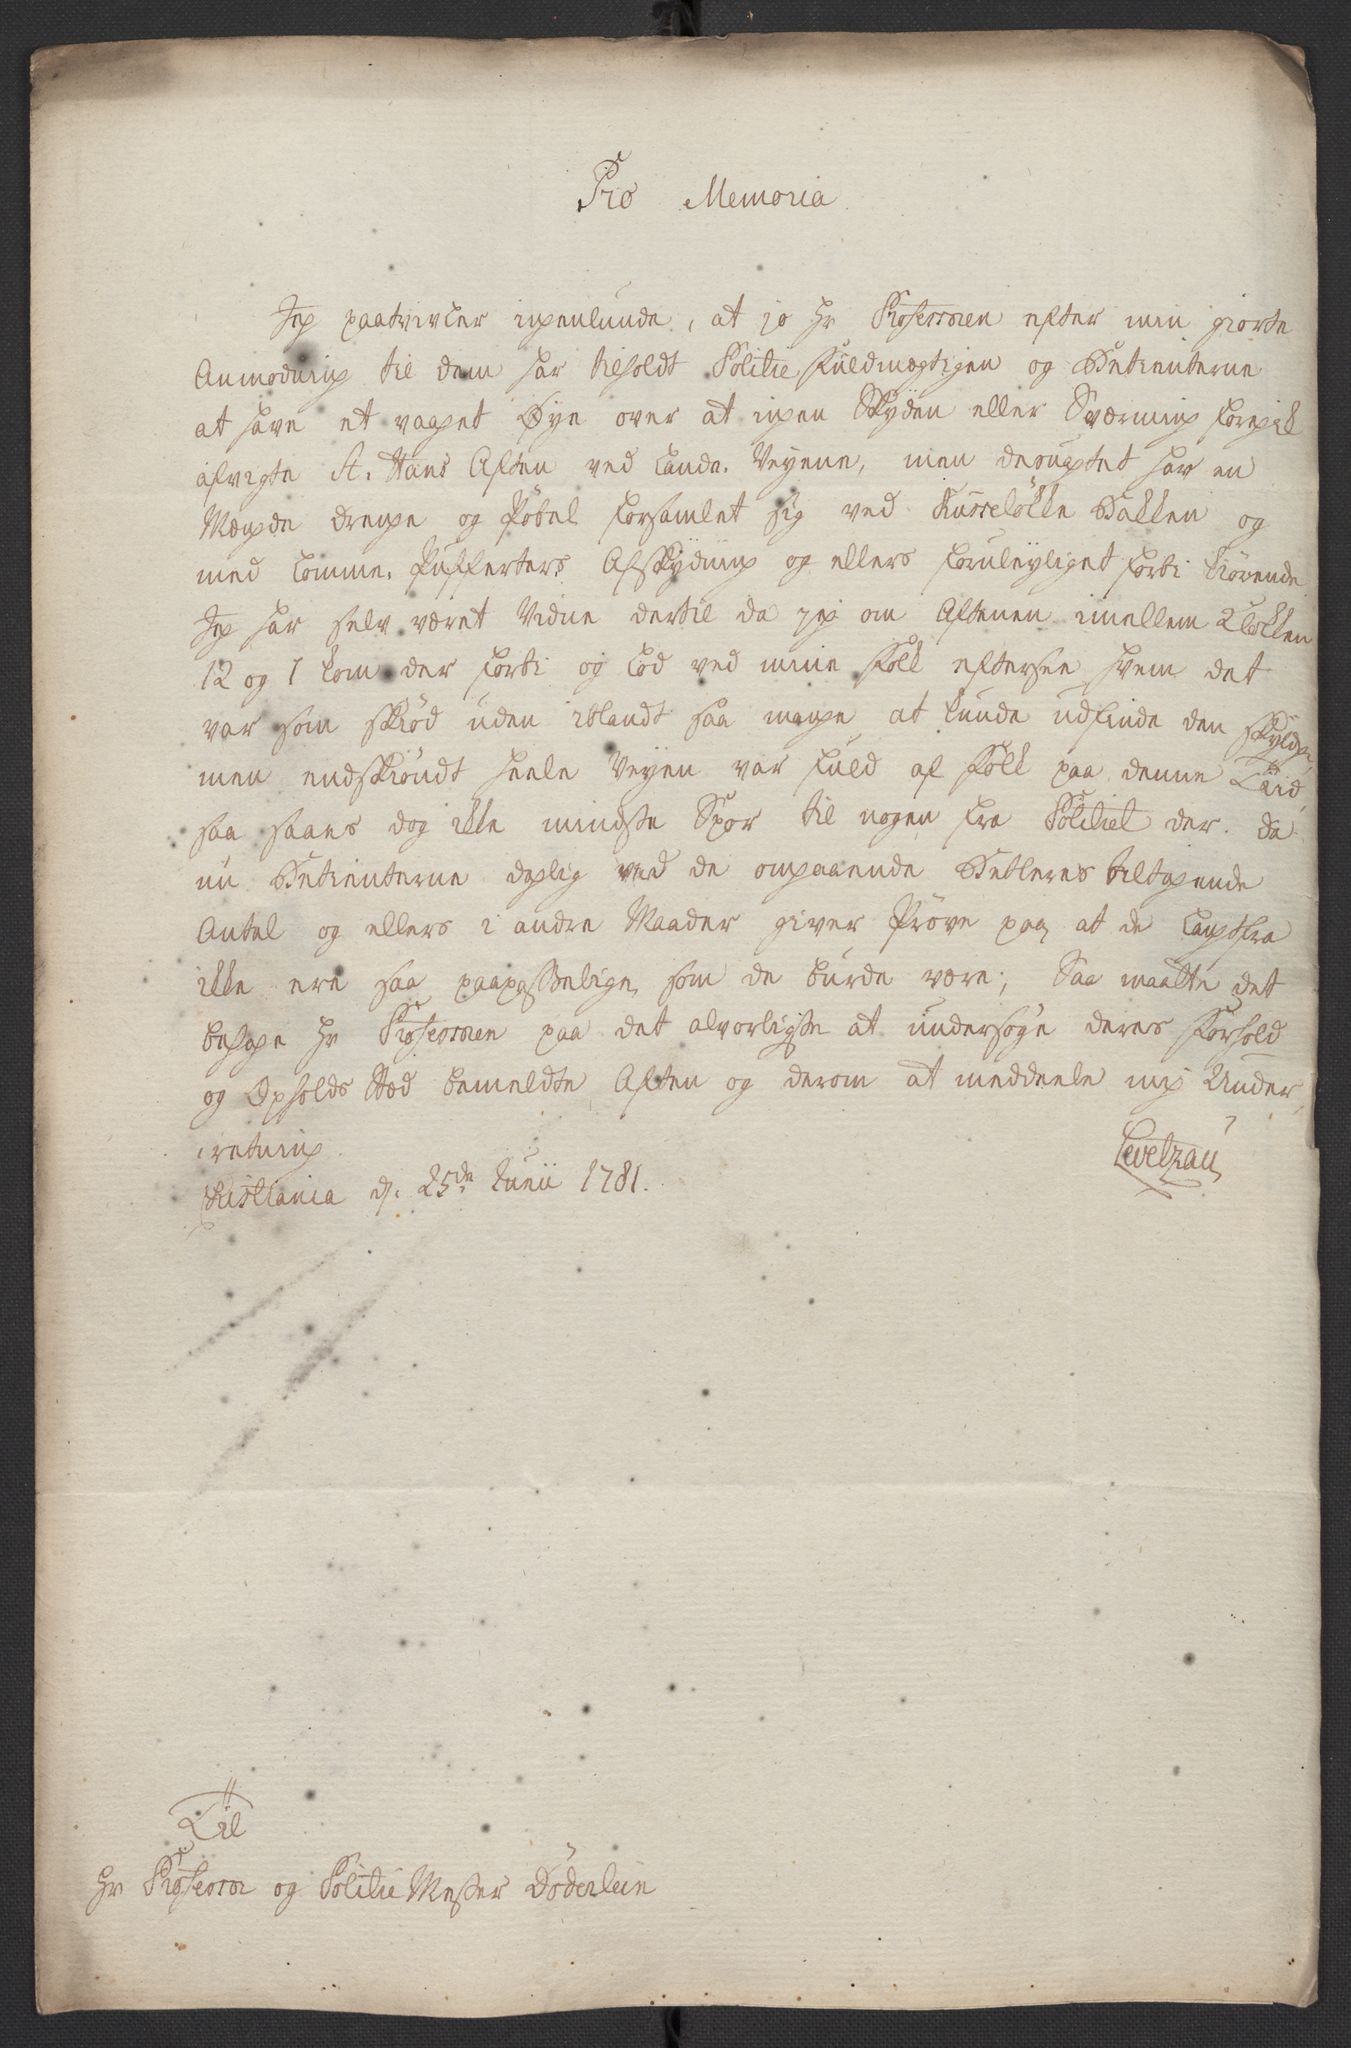 Pro Memoria
Jeg paatvivler ingenlunde, at jo Hr Professoren efter min giorte
Anmodning til dem har tilholdt Politie Fuldmægtigen og Betienterne
at have et vaaget Øye over at ingen Skyden eller Sværming foregik
afvigte St. Hans Aften ved Lande-Veyene, men desuagtet har en
Mængde Drenge og Pöbel forsamlet sig ved Russelökke Bakken og
med Lomme-Pufferters Afskydning og ellers foruleyliget forbi kiörende
Jeg har selv været Vidne dertil da jeg om Aftenen imellem Klokken
12 og 1 kom der forbi og lod ved mine Folk eftersee hvem det
var som skiød uden iblandt saa mange at kunde udfinde den skyldige,
men endskiöndt heele Veyen var fuld af Folk paa denne Tiid,
saa saaes dog ikke mindste Spor til nogen fra Politiet der. Da
nu Betienterne daglig ved de omgaaende Betleres tiltagende
Antal og ellers i andre Maader giver Pröve paa, at de langtfra
ikke ere saa paapasselige, som de burde være; Saa maatte det
behage Hr Professoren paa det alvorligste at undersøge deres Forhold
og Opholds Stæd bemeldte Aften og derom at meddeele mig Under-
rretning.
Christiania d. 25de Junii 1781.
Levetzau
Til
Hr Professor og Politie Mester Döderlein